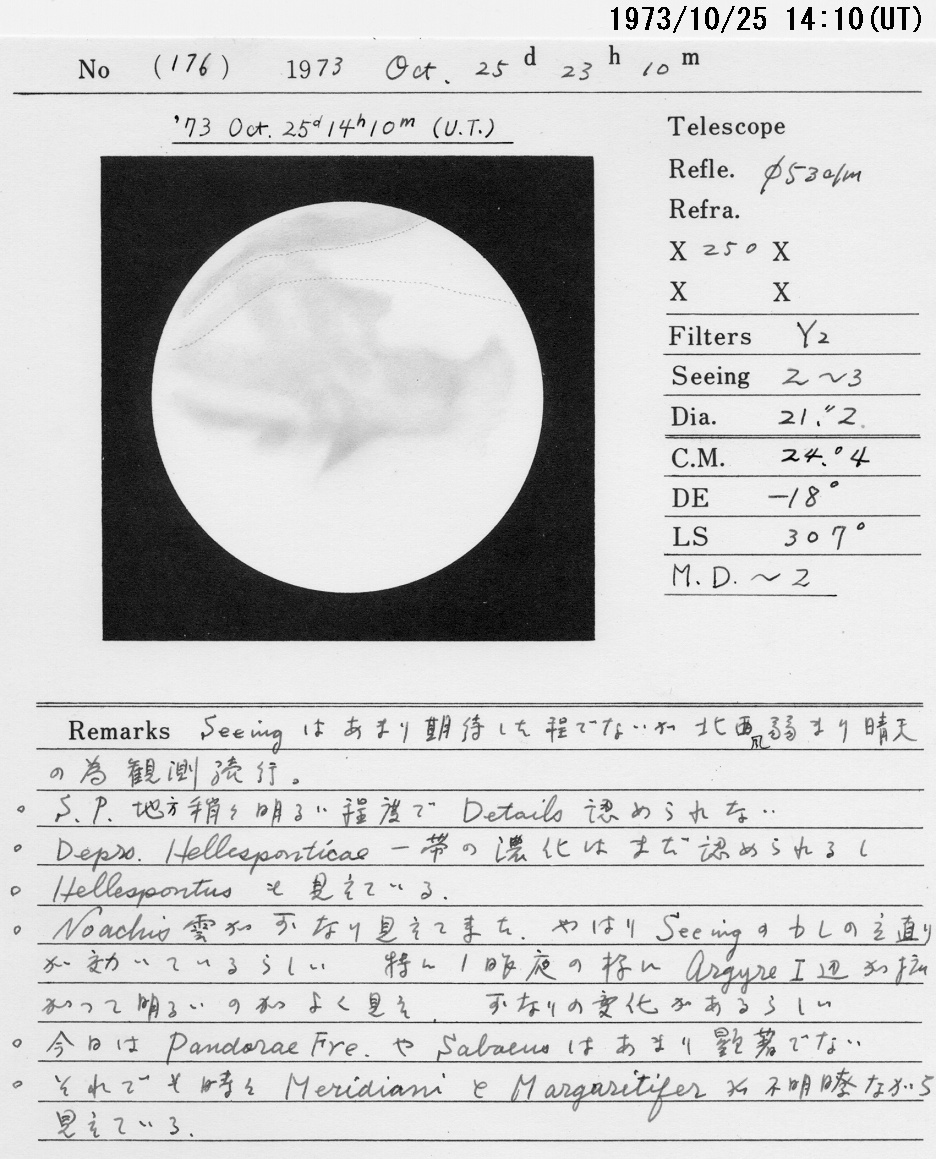 1973/10/25 14:10(UT)
No (176) 1973 Oct. 25 d 23 h 10 m
'73 Oct. 25d 14h 10m (U.T.)
Telescope
Refle. φ53c/m
Refra.
X 250 X
X X
Filters Y2
Seeing 2~3
Dia. 21."2
C.M. 24.°4
DE -18°
LS 307°
M.D. ~2
Remarks Seeing はあまり期待した程でないが 北西風弱まり晴天
の為 観測続行。
○ S.P. 地方稍々明るい程度で Details 認められない
○ Depro. Hellesponticae 一帯の濃化はまだ認められるし
○ Hellespontus も見えている.
○ Noachis 雲がかなり見えてきた. やはり Seeing の少しの立直り
が効いているらしい 特に 昨夜の様に Argyre I 辺が拡
がって明るいのがよく見え, かなりの変化があるらしい
○ 今日は Pandorae Fre. や Sabaeus はあまり顕著でない
○ それでも時々 Meridiani と Margaritifer が不明瞭ながら
見えている.